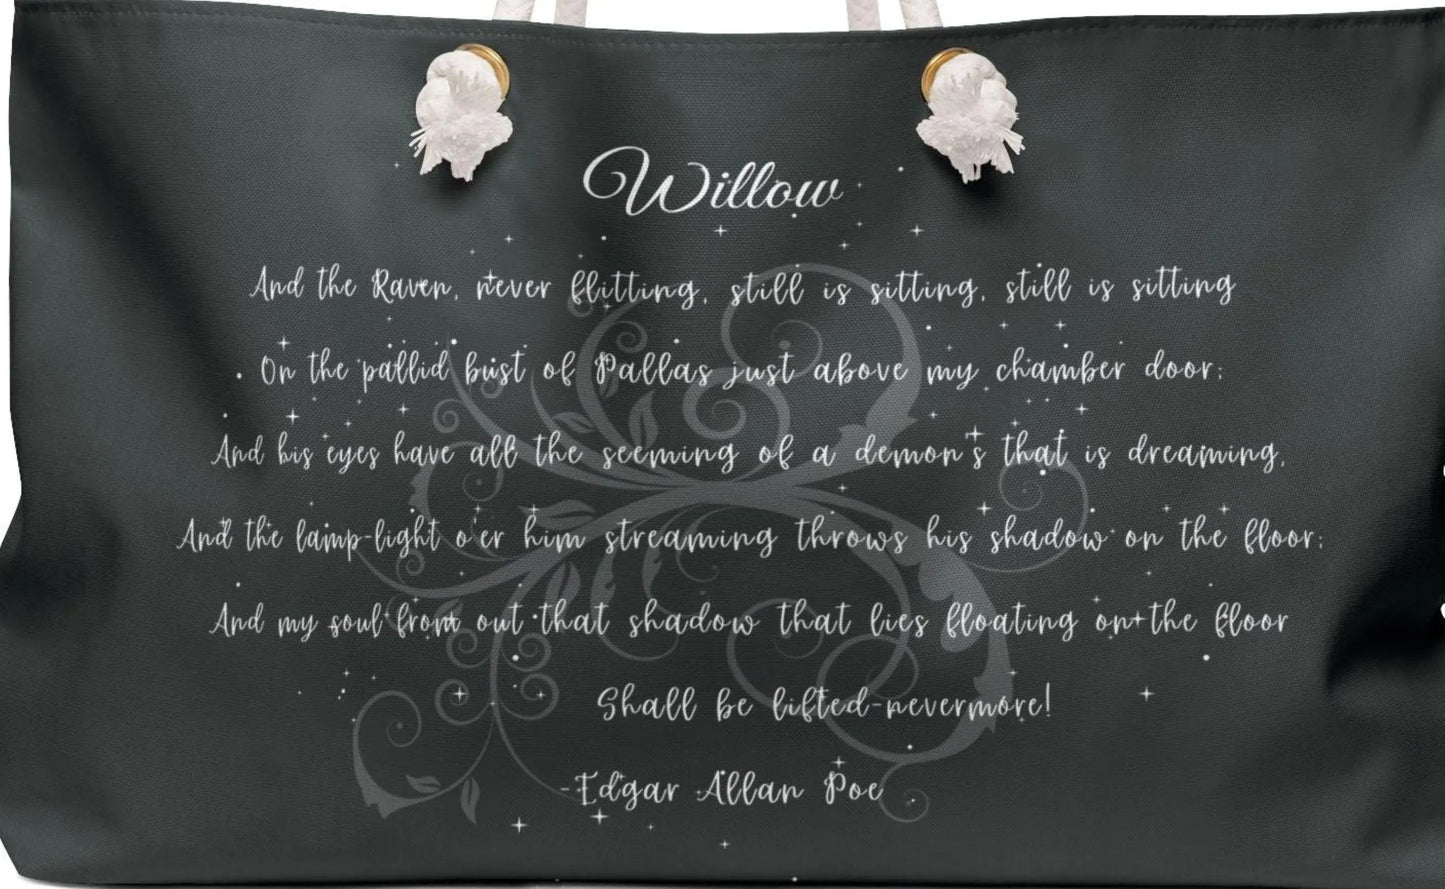 Willow
And the Raven, never flitting, still is sitting, still is sitting
On the pallid bust of Pallas just above my chamber door;
And his eyes have all the seeming of a demon's that is dreaming,
And the lamp-light o'er him streaming throws his shadow on the floor;
And my soul from out that shadow that lies floating on the floor
Shall be lifted-nevermore!
-Edgar Allan Poe